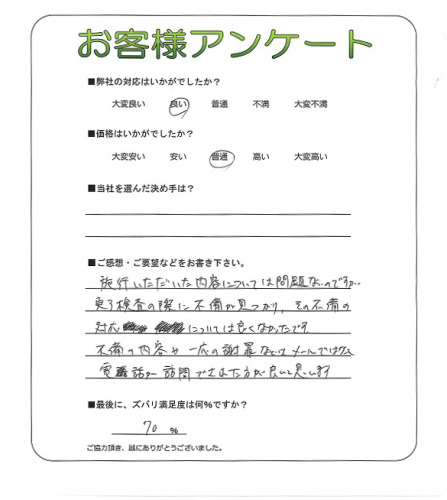 お客様アンケート
■弊社の対応はいかがでしたか？
大変良い 良い 普通 不満 大変不満
■価格はいかがでしたか？
大変安い 安い 普通 高い 大変高い
■当社を選んだ決め手は？
■ご感想・ご要望などをお書き下さい。
施行いただいた内容については問題ないのですが、
完了検査の際に不備が見つかり、その不備の
対応 については良くなかったです
不備の内容や一応の謝罪などは メールではなく
電話か 訪問でされた方が良いと思います
■最後に、ズバリ満足度は何％ですか？
70 ％
ご協力頂き、誠にありがとうございました。